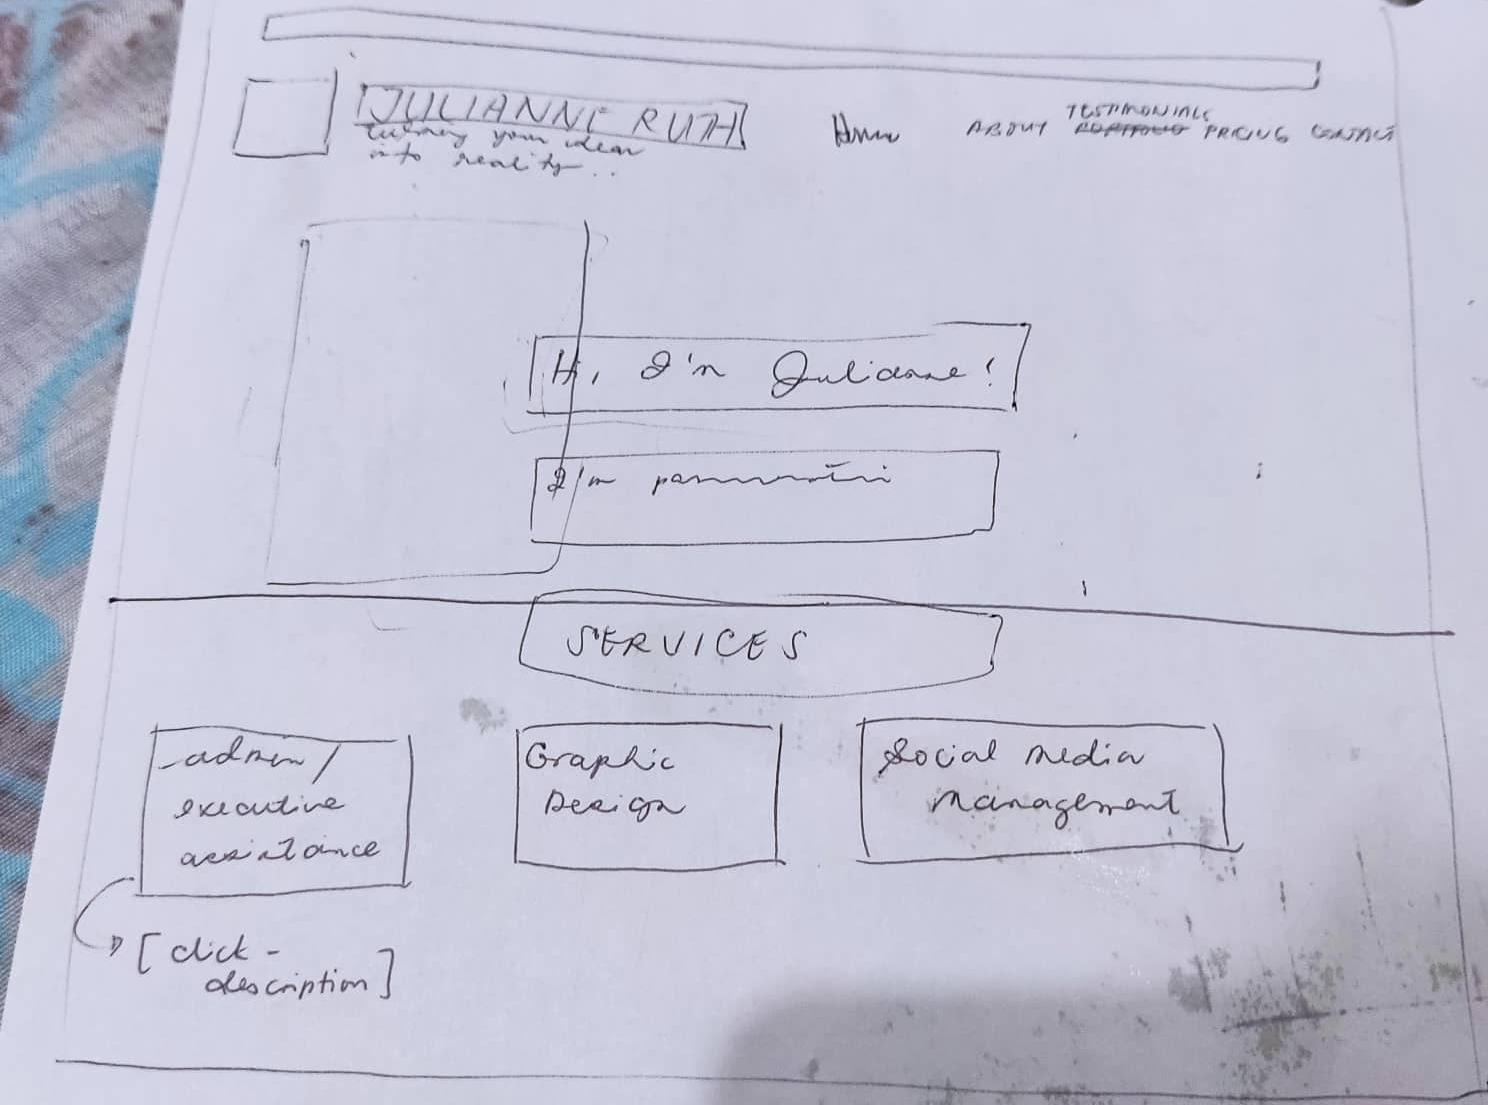 JULIANNE RUTH
turning your ideas
into reality..
Home ABOUT TESTIMONIALS PRICING CONTACT
Hi, I'm Julianne!
I'm
SERVICES
admin/
executive
assistance
Graphic
Design
Social media
management
[click -
description]